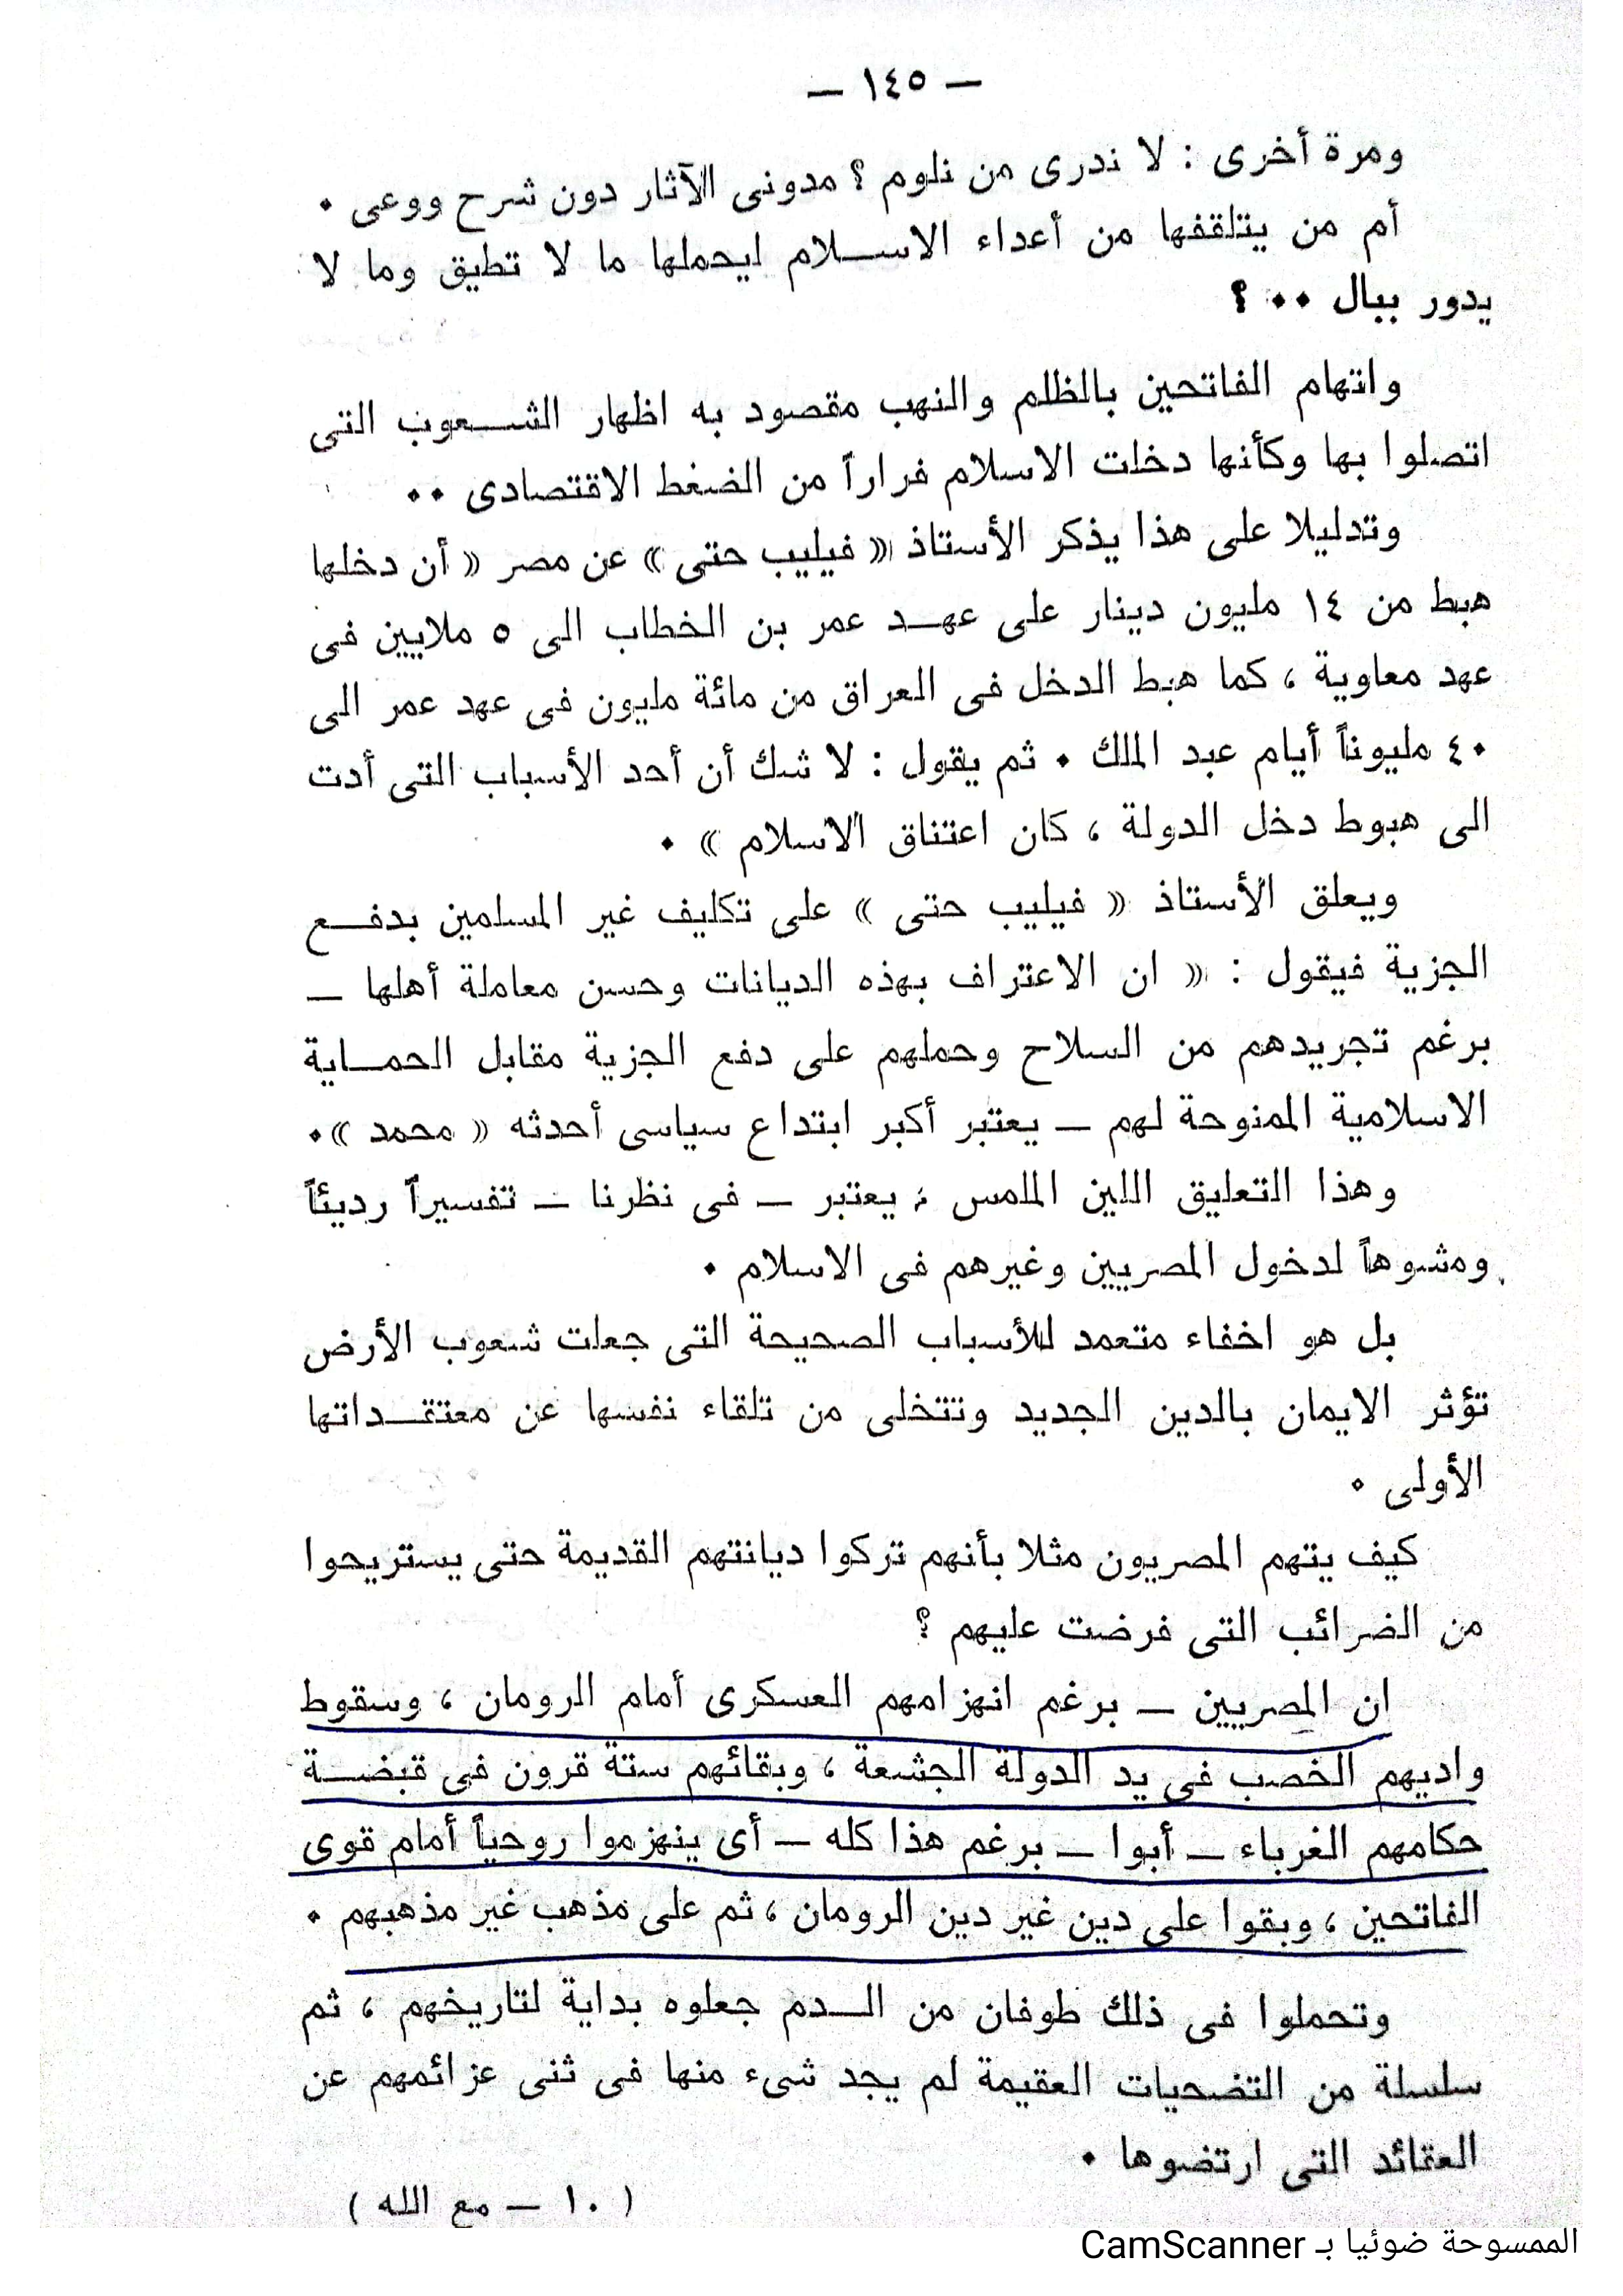 — ١٤٥ —
ومرة أخرى : لا ندرى من نلوم ؟ مدونى الآثار دون شرح ووعى ٠
أم من يتلقفها من أعداء الاسـلام ليحملها ما لا تطيق وما لا
يدور ببال ٠٠ ؟
واتهام الفاتحين بالظلم والنهب مقصود به اظهار الشـعوب التى
اتصلوا بها وكأنها دخلت الاسلام فراراً من الضغط الاقتصادى ٠٠
وتدليلا على هذا يذكر الأستاذ « فيليب حتى » عن مصر « أن دخلها
هبط من ١٤ مليون دينار على عهـد عمر بن الخطاب الى ٥ ملايين فى
عهد معاوية ، كما هبط الدخل فى العراق من مائة مليون فى عهد عمر الى
٤٠ مليوناً أيام عبد الملك ٠ ثم يقول : لا شك أن أحد الأسباب التى أدت
الى هبوط دخل الدولة ، كان اعتناق الاسلام » ٠
ويعلق الأستاذ « فيليب حتى » على تكليف غير المسلمين بدفـع
الجزية فيقول : « ان الاعتراف بهذه الديانات وحسن معاملة أهلها —
برغم تجريدهم من السلاح وحملهم على دفع الجزية مقابل الحمـاية
الاسلامية الممنوحة لهم — يعتبر أكبر ابتداع سياسى أحدثه « محمد »٠
وهذا التعليق اللين الملمس ؛ يعتبر — فى نظرنا — تفسيراً رديئاً
ومشوهاً لدخول المصريين وغيرهم فى الاسلام ٠
بل هو اخفاء متعمد للأسباب الصحيحة التى جعلت شعوب الأرض
تؤثر الايمان بالدين الجديد وتتخلى من تلقاء نفسها عن معتقـداتها
الأولى ٠
كيف يتهم المصريون مثلا بأنهم تركوا ديانتهم القديمة حتى يستريحوا
من الضرائب التى فرضت عليهم ؟
ان المصريين — برغم انهزامهم العسكرى أمام الرومان ، وسقوط
واديهم الخصب فى يد الدولة الجشعة ، وبقائهم ستة قرون فى قبضـة
حكامهم الغرباء — أبوا — برغم هذا كله — أى ينهزموا روحياً أمام قوى
الفاتحين ، وبقوا على دين غير دين الرومان ، ثم على مذهب غير مذهبهم ٠
وتحملوا فى ذلك طوفان من الـدم جعلوه بداية لتاريخهم ، ثم
سلسلة من التضحيات العقيمة لم يجد شىء منها فى ثنى عزائمهم عن
العقائد التى ارتضوها ٠
( ١٠ — مع الله )
الممسوحة ضوئيا بـ CamScanner